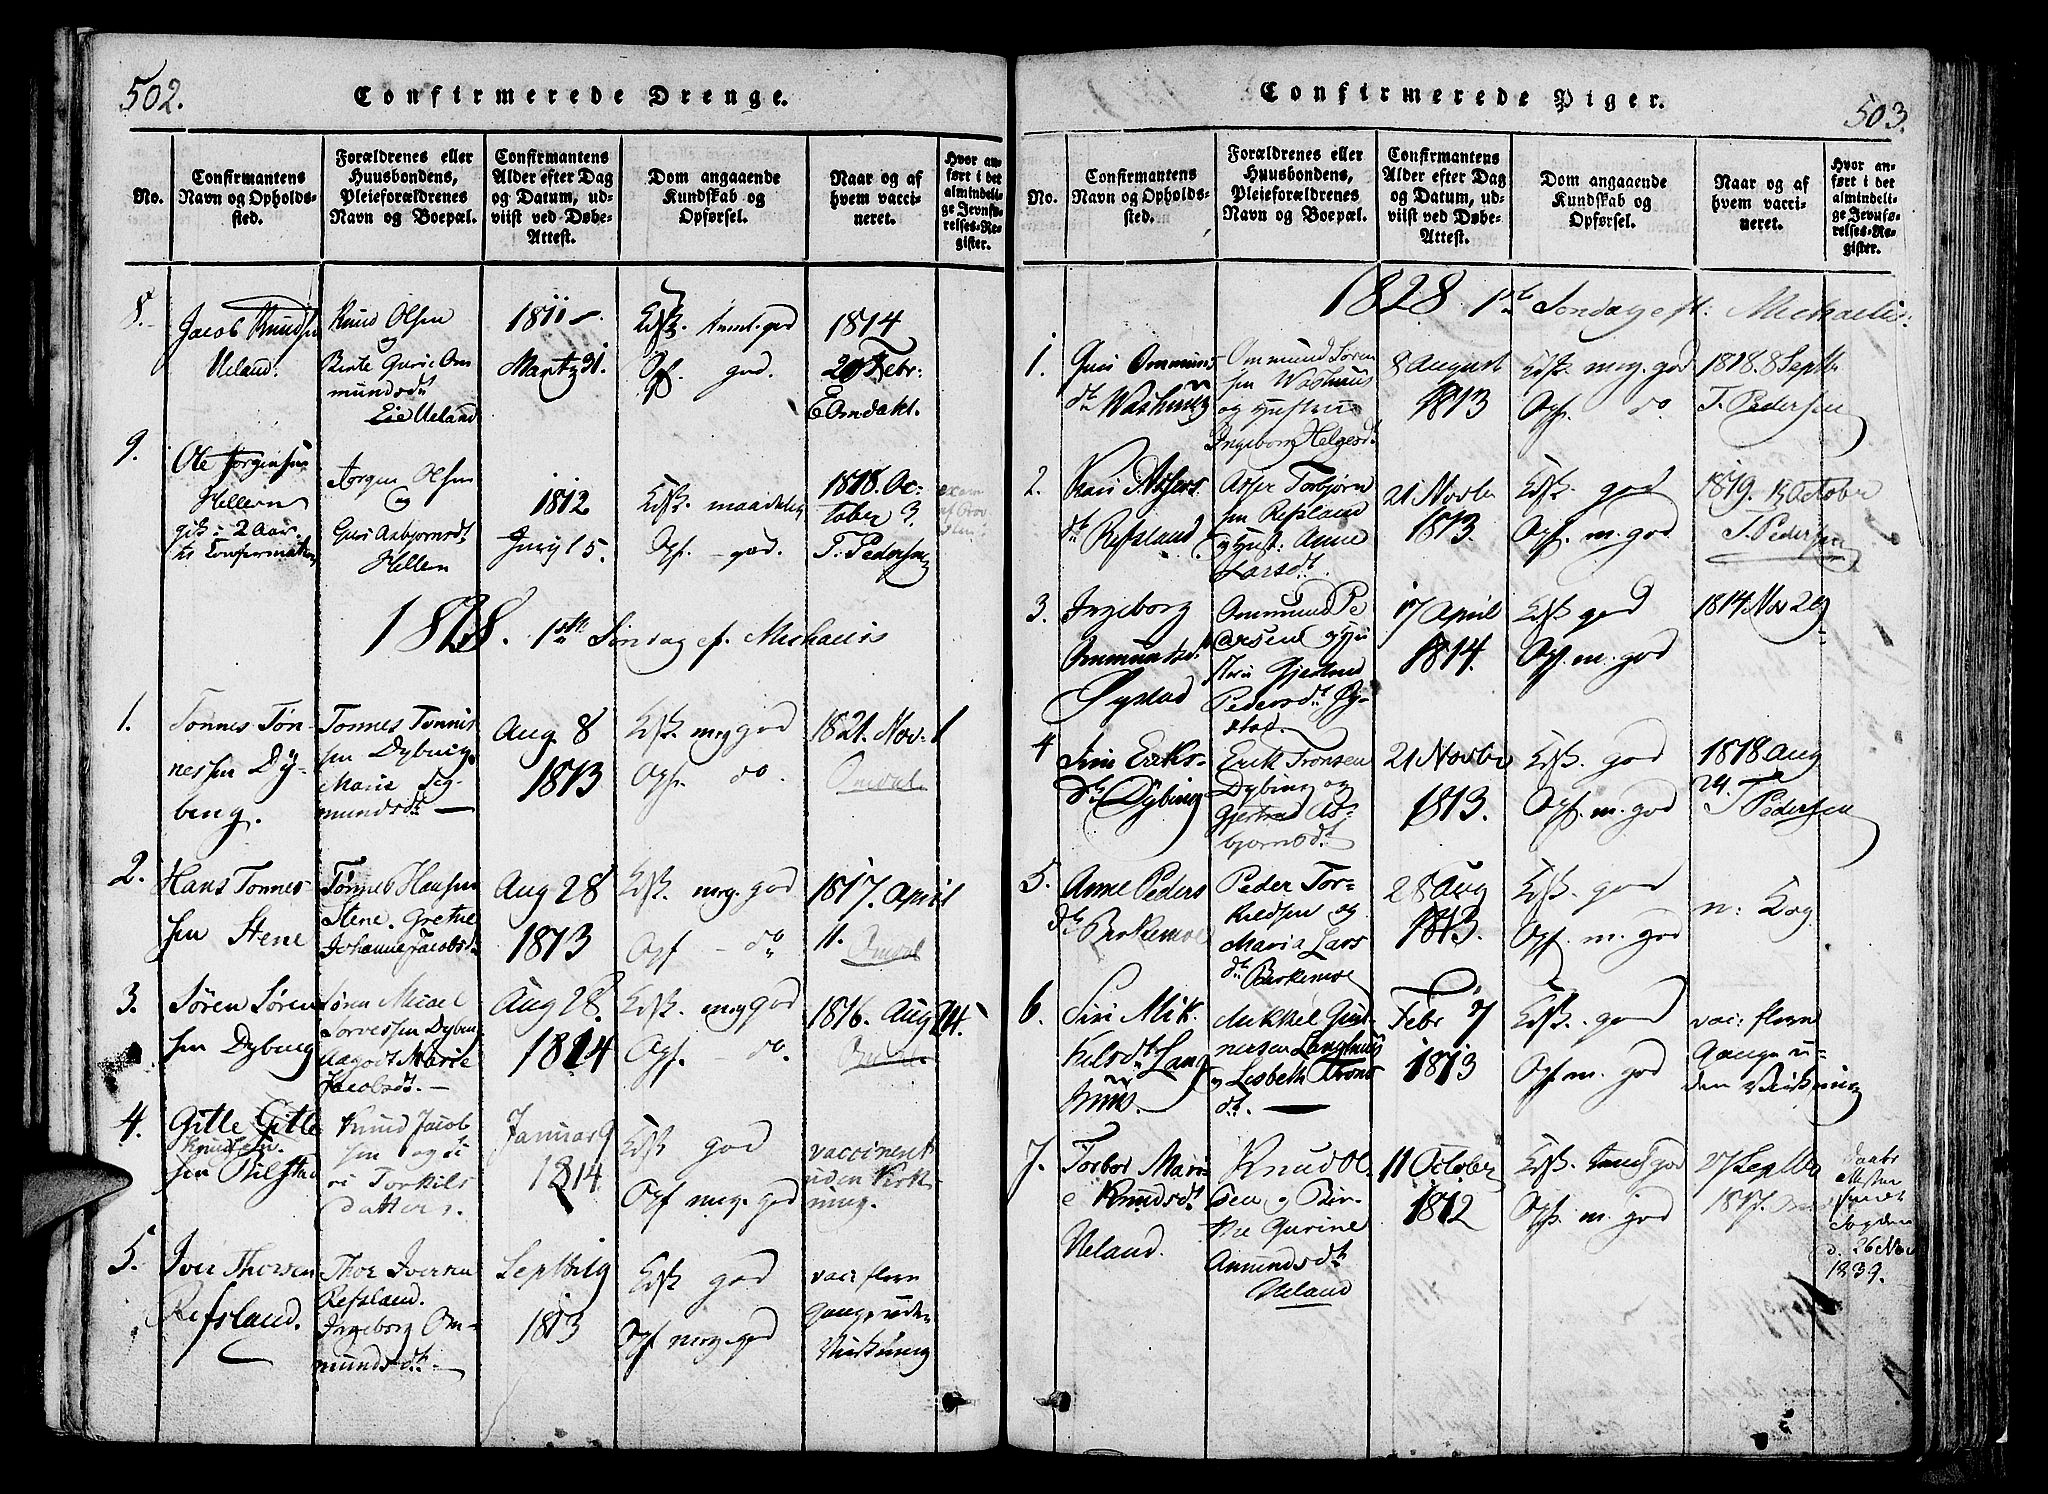 502.
Confirmerede Drenge.
No.
Confirmantens
Navn og Opholds-
sted.
Forældrenes eller
Huusbondens,
Pleieforældrenes
Navn og Boepæl.
Confirmantens
Alder efter Dag
og Datum, ud-
viist ved Døbe-
Attest.
Dom angaaende
Kundskab og
Opførsel.
Naar og af
hvem vacci-
neret.
Hvor an-
ført i det
almindeli-
ge Jevnfø-
relses-Re-
gister.
8.
Jacob Knudsen
Ueland.
Knud Olsen
og
Berte Gurie Om
mundsdt
Lie Ueland
1811
Martz 31.
Kdsk. taml. god
Opf. god.
1814
20 Febr:
E Omdahl.
9.
Ole Jørgensen
Hellern
gik i 2 Aar
til Confirmation
Jørgen Olsen
og
Guri Asbjørnsdt
Hellern
1812
Juny 15.
Kdsk. maadelig
Opf. god.
1818. Oc-
tober 3.
T. Pedersen
1828. 1ste Søndag ef. Michaelis
1.
Tønnes Tøn-
nessen Dy-
bing.
Tønnes Tønnis
sen Dybing,
Marie Sig-
mundsdt
Aug 8
1813
Kdsk. meg god
Opf. do.
1821. Nov. 1
Omdal.
2.
Hans Tønnes-
sen Stene
Tønnes Hansen
Stene. Grethe
Johanne Jacobsd.
Aug 28
1813
Kdsk. meg. god
Opf - do
1817. April
11. Omdal
3.
Søren Søren
sen Dybing
Søren Michel
Torvessen Dybing
Marie
Jacobsdt.
Aug 28.
1814
Kdsk. meg god
Opf. - do.
1816. Aug 24.
Omdal.
4.
Gitle Gitle
Knudsen.
sen Bilstad
Knud Jacob
sen og Si
ri Torkils
datter.
Januar 9
1814
Kdsk god
Opf meg. god
vaccineret
uden Virk-
ning.
5.
Iver Thorsen
Refsland.
Thor Iversen
Refsland.
Ingeborg Om-
mundsdt.
1813
Kdsk god
Opf meg. god
vac: flere
Gange uden
Virkning
Confirmerede Piger.
503.
No.
Confirmantens
Navn og Opholds-
sted.
Forældrenes eller
Huusbondens,
Pleieforældrenes
Navn og Boepæl.
Confirmantens
Alder efter Dag
og Datum, ud-
viist ved Døbe-
Attest.
Dom angaaende
Kundskab og
Opførsel.
Naar og af
hvem vacci-
neret.
Hvor an-
ført i det
almindeli-
ge Jevnfø-
relses-Re-
gister.
1828 1ste Søndag eft. Michaelis.
1.
Guri Ommunds
dt Washuus
Ommund Søren
sen Washuus
og Hustru
Ingeborg Helgesdt
8 August
1813
Kdsk. meg. god
Opf. do
1818. 8 Septb.
T. Pedersen
2.
Kari Assers
dt Refsland
Asser Torbjørn
sen Refsland
og Hust: Anne
Larsdt.
21 Novbr
1813.
Kdsk. god
Opf. m. god
1819. 13 October
T. Pedersen
3.
Ingeborg
Ommundsd.
Øystad
Ommund Pe
dersen og Hu
stru Gjertrud
Pedersdt Øy-
stad.
17 April
1814.
Kdsk god
Opf. m. god
1814 Nov 29
4
Siri Eriks-
dt Dybing
Erik Tronsen
Dybing og
Gjertrud As-
bjørnsdt
21 Novbr
1813.
Kdsk. god
Opf. m. god
1818 aug
24. T Pedersen
5.
Anne Peders
dt Birkemoe
Peder Tor-
kildsen og
Maria Lars
dt Birkemoe
28 Aug
1813.
Kdsk. god
Opf. m. god
n: Kog
6.
Siri Mik-
kelsdt Lang-
huus.
Mikkel Gun-
nersen Langhuus
og Lisbeth Trons
dt.
Febr 7
1813
Kdsk. god
Opf m. god
vac: flere
Gange u-
den Virkning
7.
Torbor Mari
e Knudsdt.
Ueland.
Knud Ol
sen og Bir-
the Gurine
Amundsdt
Ueland
11 October
1812
Kdsk. taml god
Opf. m. god
27 Septbr
1817.
d. 26 Nov
1839.